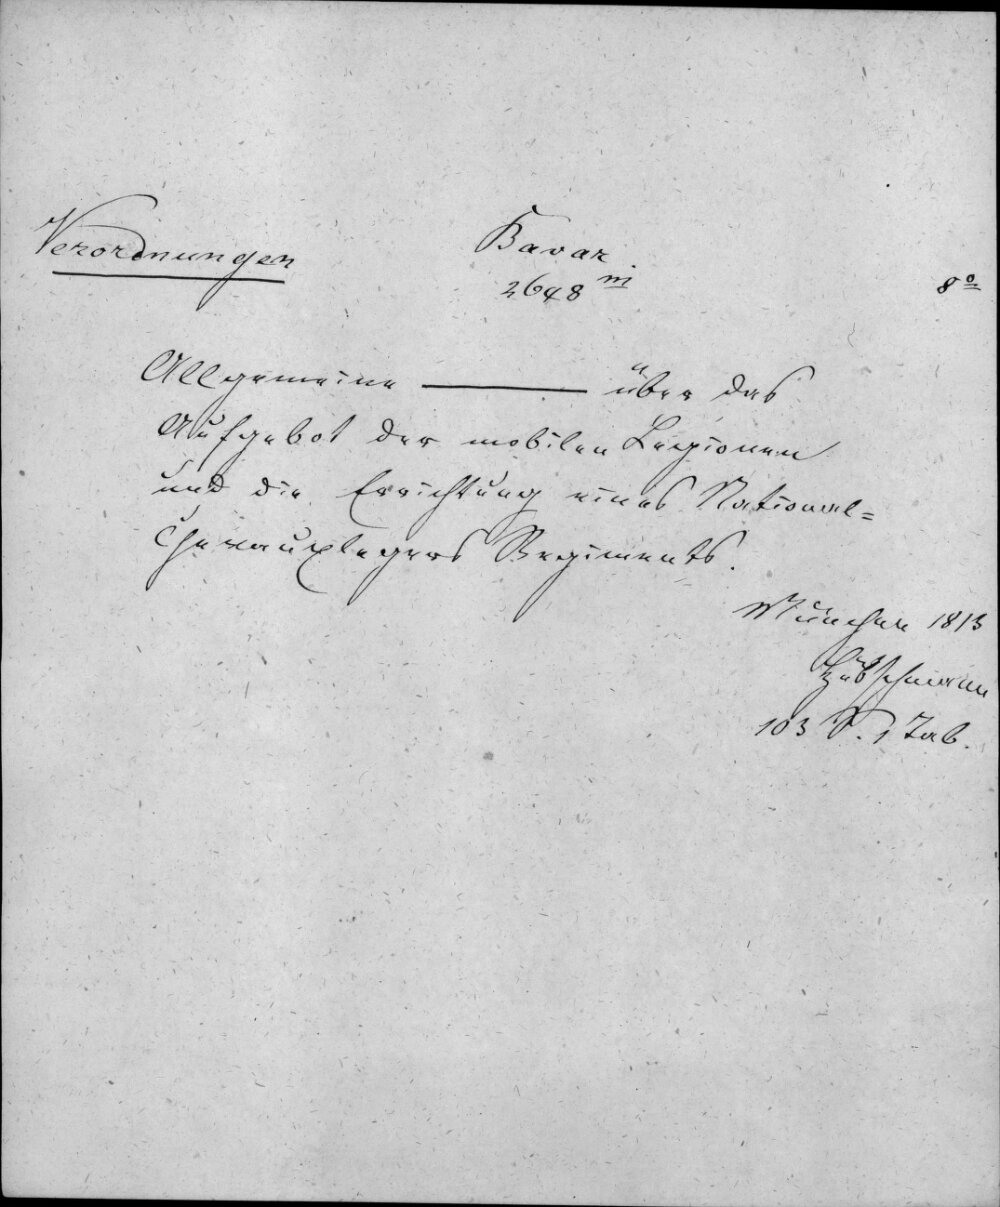 Verordnungen
Bavar.
2648 m
8o
Allgemeine ——— über das
Aufgebot der mobilen Legionen
und die Errichtung eines National=
Chevauxlegers Regiments.
München 1813
Hübschmann
103 S. 1 Tab.